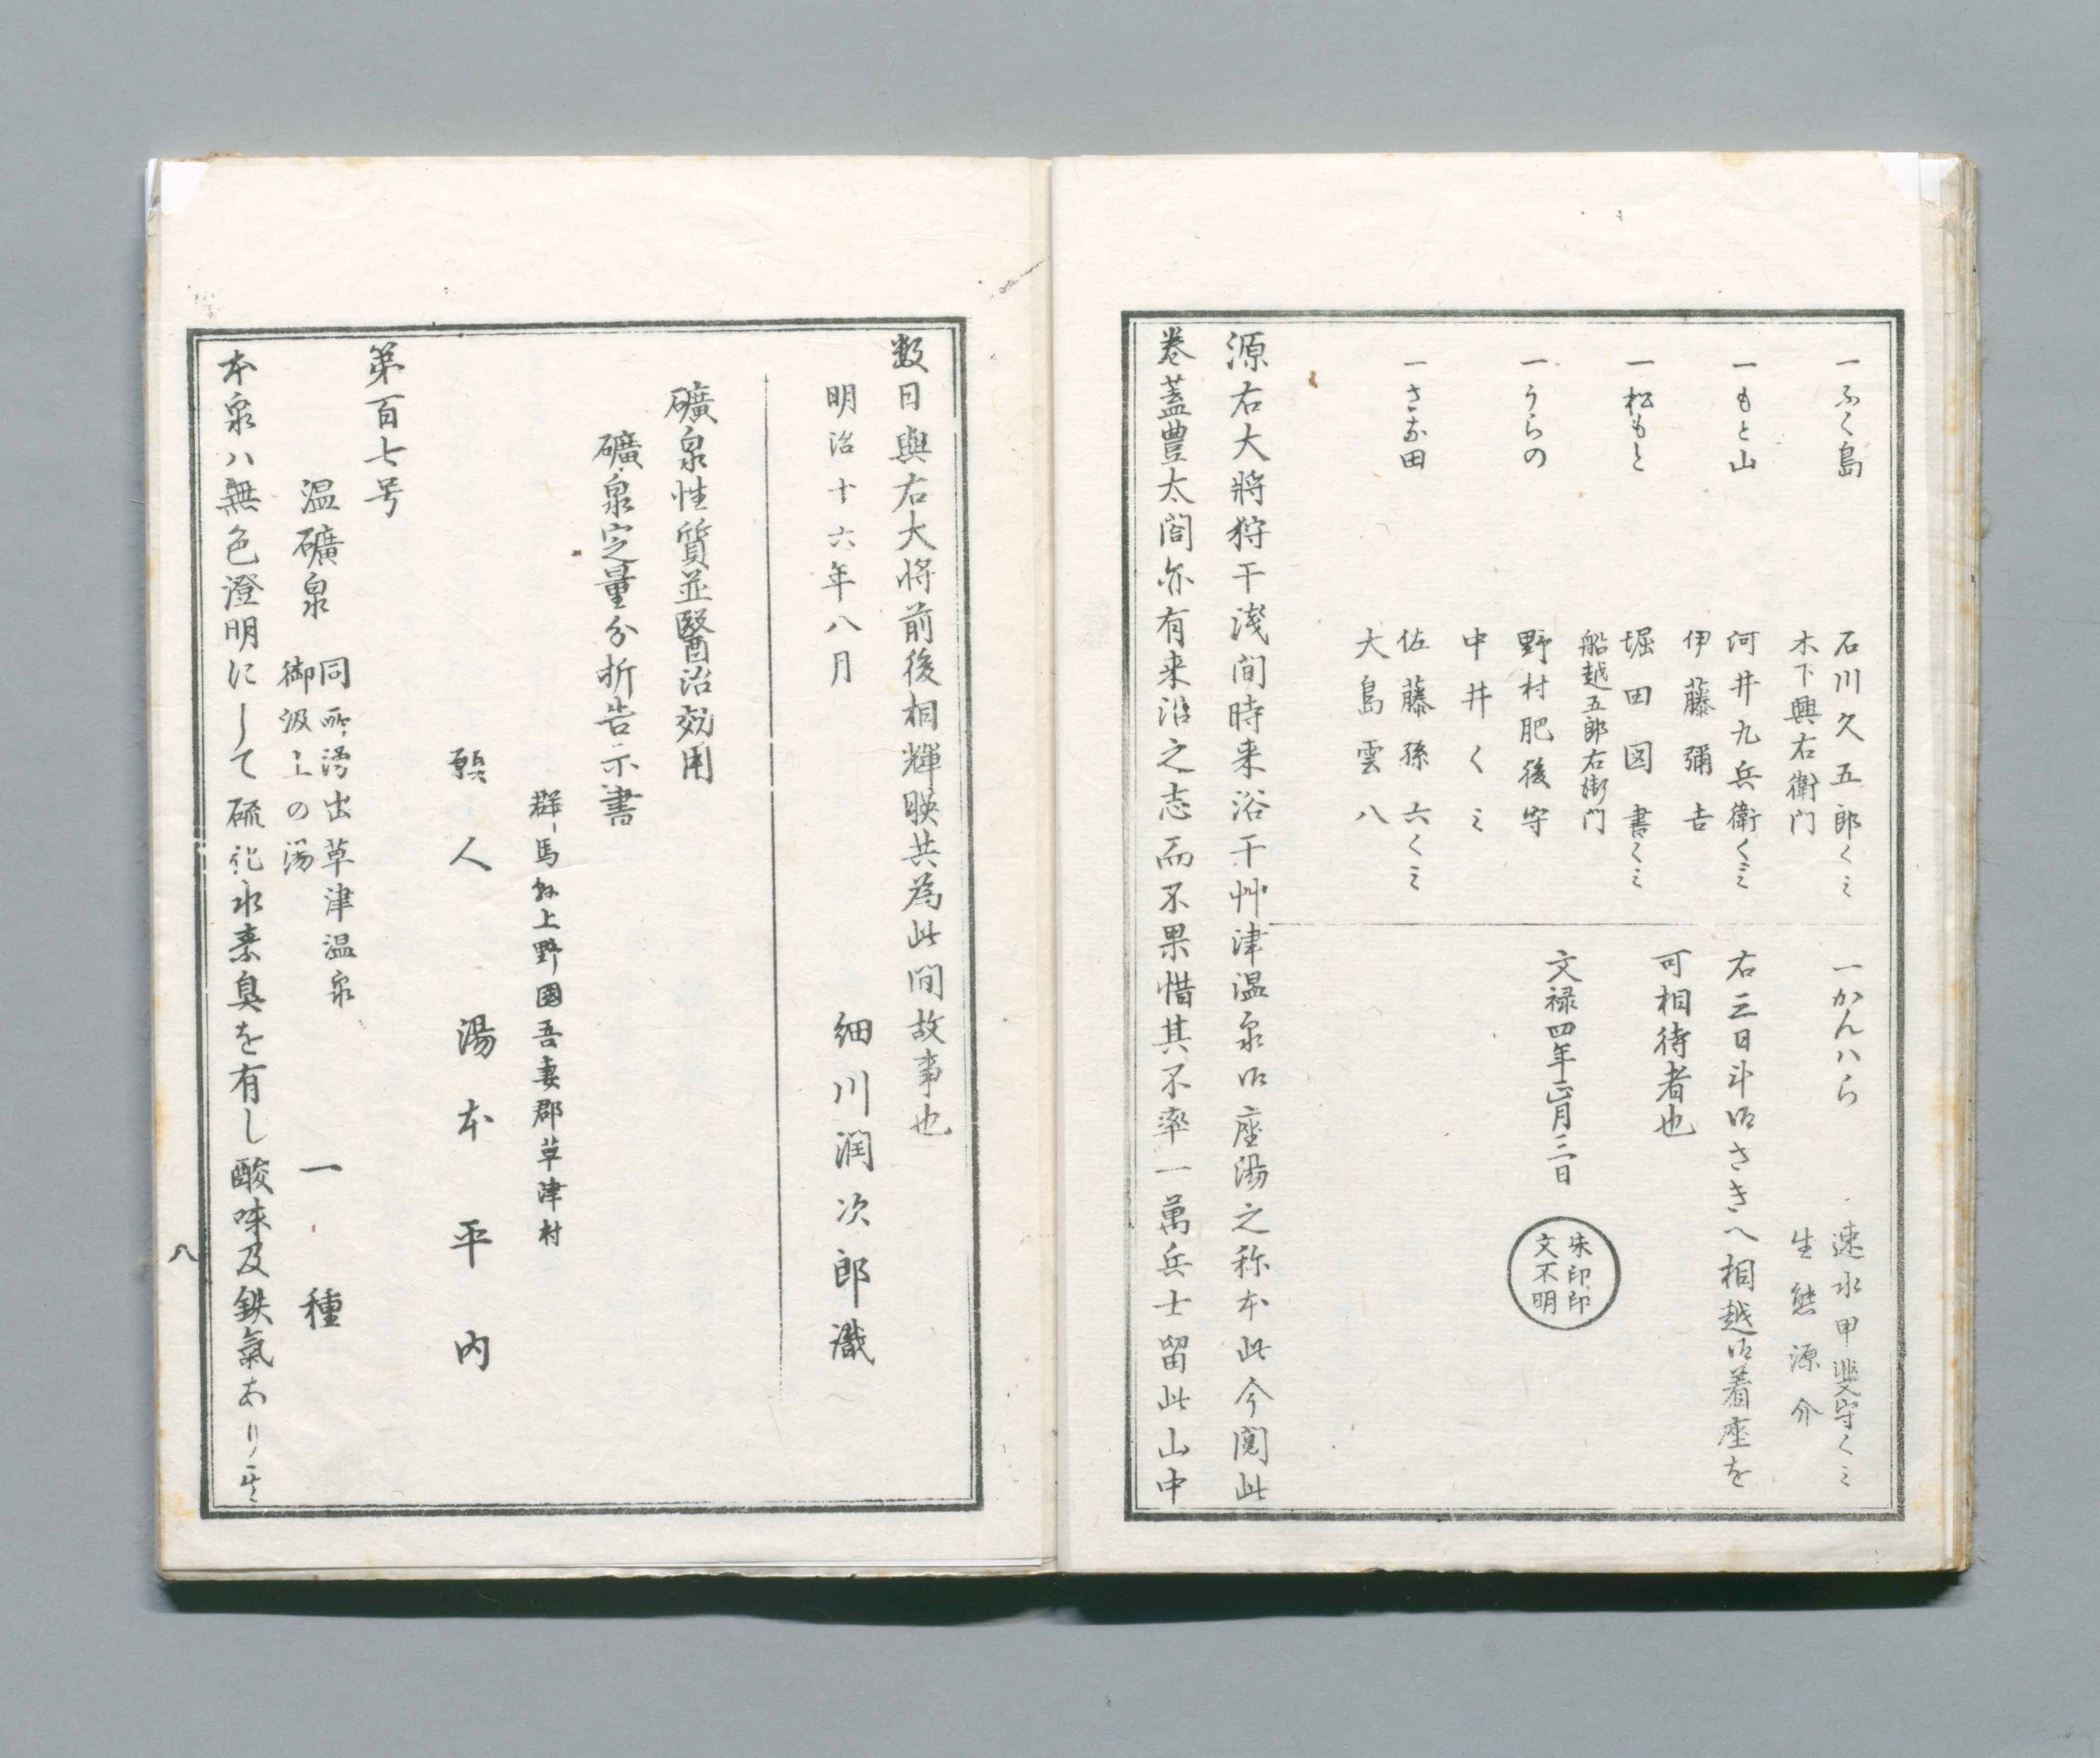 一ふく島
石川久五郎くミ
木下興右衛門
一もと山
河井九兵衛くミ
伊藤彌吉
一松もと
堀田図書くミ
船越五郎右衛門
一うらの
野村肥後守
中井くミ
一さな田
佐藤孫六くミ
大島雲八
一かんハら
速水甲斐守くミ
生熊源介
右三日斗御さきへ相越御着座を
可相待者也
文禄四年正月三日
朱印印
文不明
源右大將狩干淺間時来浴干艸津温泉御座湯之称本此今閲此
巻蓋豊太閤亦有来浴之志而不果惜其不率一萬兵士留此山中
数日與右大将前後相輝暎共為此間故事也
明治十六年八月
細川潤次郎識
礦泉性質並醫治効用
礦泉定量分析告示書
群馬縣上野國吾妻郡草津村
願人 湯本平内
第百七号
温礦泉 同所湧出草津温泉
御汲上の湯
一種
本泉ハ無色澄明にして硫化水素臭を有し酸味及鉄氣あり其
八